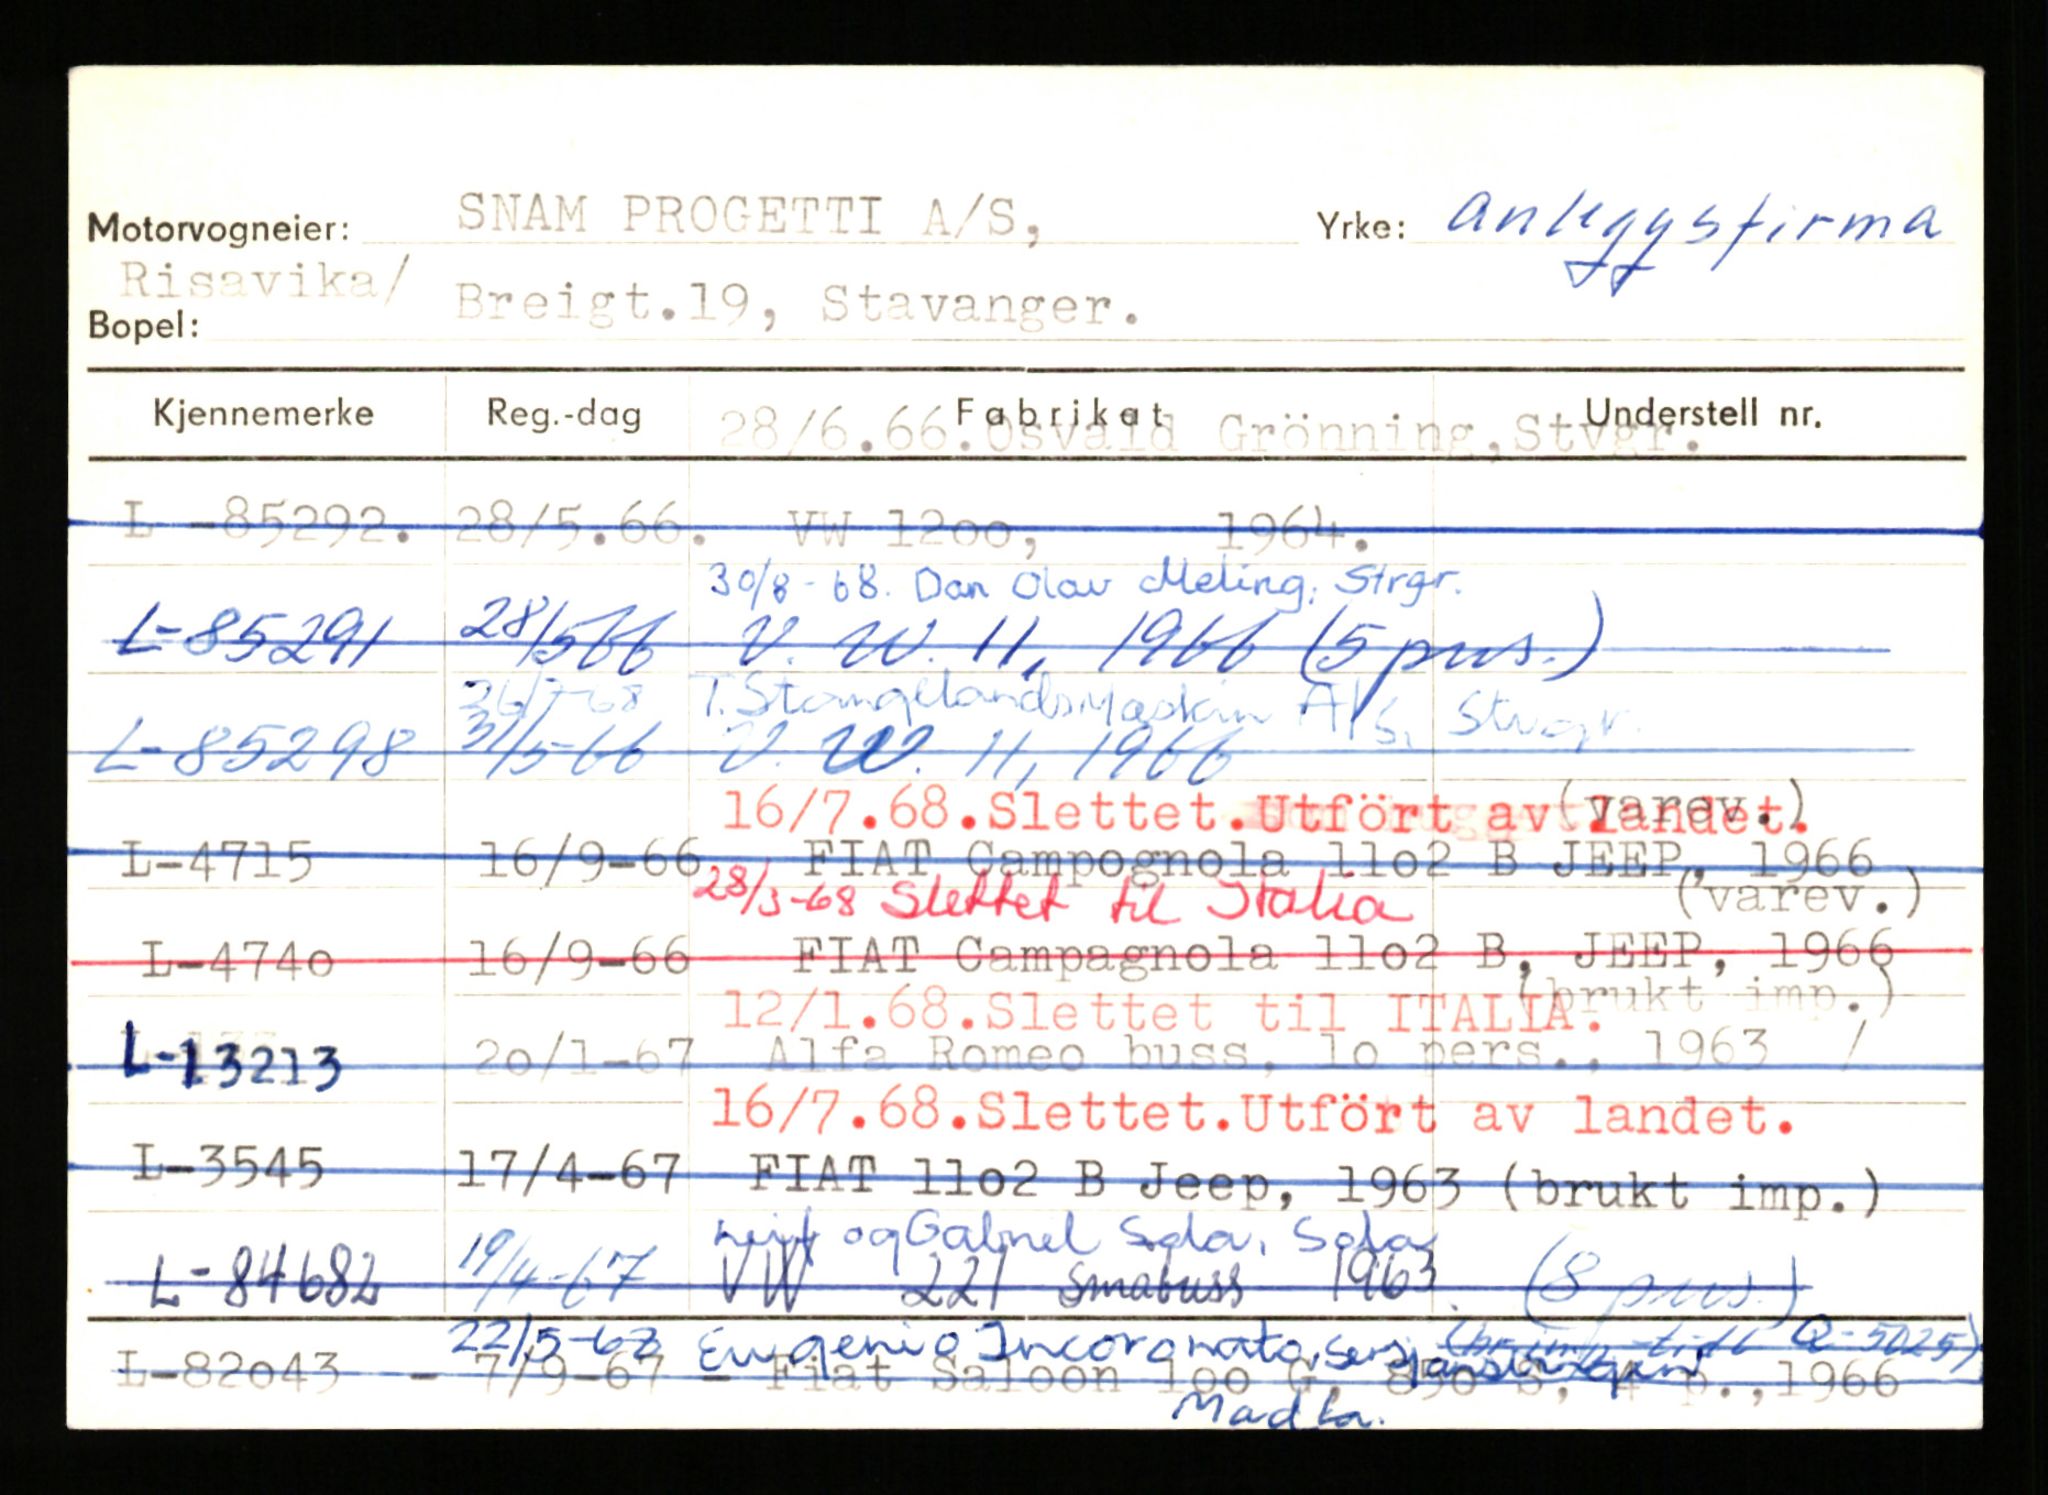 SNAM PROGETTI A/S,
Motorvogneier: Yrke: anleggsfirma
Risavika/
Breigt.19, Stavanger.
Bopel:
Kjennemerke Reg.-dag Fabrikat Understell nr.
28/6.66.Osvald Grönning,Stvgr.
L -85292. 28/5.66. VW 12oo, 1964.
30/8-68. Dan Olav Meling, Stvgr.
L-85291 28/5 66 V. W. 11, 1966 (5 pers.)
26/7-68 T. Stangelandsmaskin A/S, Stvgr.
L-85298 31/5-66 V. W. 11, 1966
16/7.68.Slettet.Utfört av landet.
(varev.)
L-4715 16/9-66 FIAT Campognola 11o2 B JEEP, 1966
28/3-68 Slettet til Italia
(varev.)
L-474o 16/9-66 FIAT Campagnola 11o2 B, JEEP, 1966
(brukt imp.)
12/1.68.Slettet til ITALIA.
L-13213 2o/1-67 Alfa Romeo buss, 1o pers., 1963 /
16/7.68.Slettet.Utfört av landet.
L-3545 17/4-67 FIAT 11o2 B Jeep, 1963 (brukt imp.)
Leif og Gabriel Sola, Sola
L-84682 19/4-67 VW 221 småbuss 1963 (8 pers.)
22/5-68 Eugenio Incoronato, Q-5025)
L-82o43 - 7/9-67 - Fiat Saloon 1oo G, 850 S, 4 p.,1966
Madla.